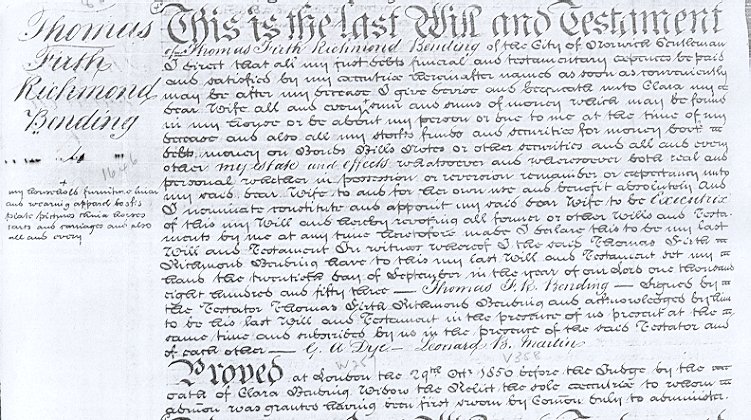 Thomas
Firth
Richmond
Bending
1646
+
my household furniture linen
and wearing apparel books
plate pictures china horses
carts and carriages and also
all and every
This is the last Will and Testament
of Thomas Firth Richmond Bending of the City of Norwich Gentleman
I direct that all my just debts funeral and testamentary expences be paid
and satisfied by my executrix hereinafter named as soon as conveniently
may be after my decease I give devise and bequeath unto Clara my
dear Wife all and every sum and sums of money which may be found
in my house or be about my person or due to me at the time of my
decease and also all my stocks funds and securities for money book
debts money on Bonds Bills Notes or other securities and all and every
other my estate and effects whatsoever and wheresoever both real and
personal whether in possession or reversion remainder or expectancy unto
my said dear Wife to and for her own use and benefit absolutely And
I nominate constitute and appoint my said dear Wife to be Executrix
of this my Will and hereby revoking all former or other Wills and Testa-
ments by me at any time heretofore made I declare this to be my last
Will and Testament In witness whereof I the said Thomas Firth
Richmond Bending have to this my last Will and Testament set my
hand the twentieth day of September in the year of our Lord one thousand
eight hundred and fifty three — Thomas F. R. Bending — Signed by
the Testator Thomas Firth Richmond Bending and acknowledged by him
to be his last Will and Testament in the presence of us present at the
same time and subscribed by us in the presence of the said Testator and
of each other — G A Dye — Leonard B. Martin
V358
Proved at London the 29th Octr 1850 before the Judge by the
oath of Clara Bending Widow the Relict the sole executrix to whom
admon was granted having been first sworn by Comon duly to administer.